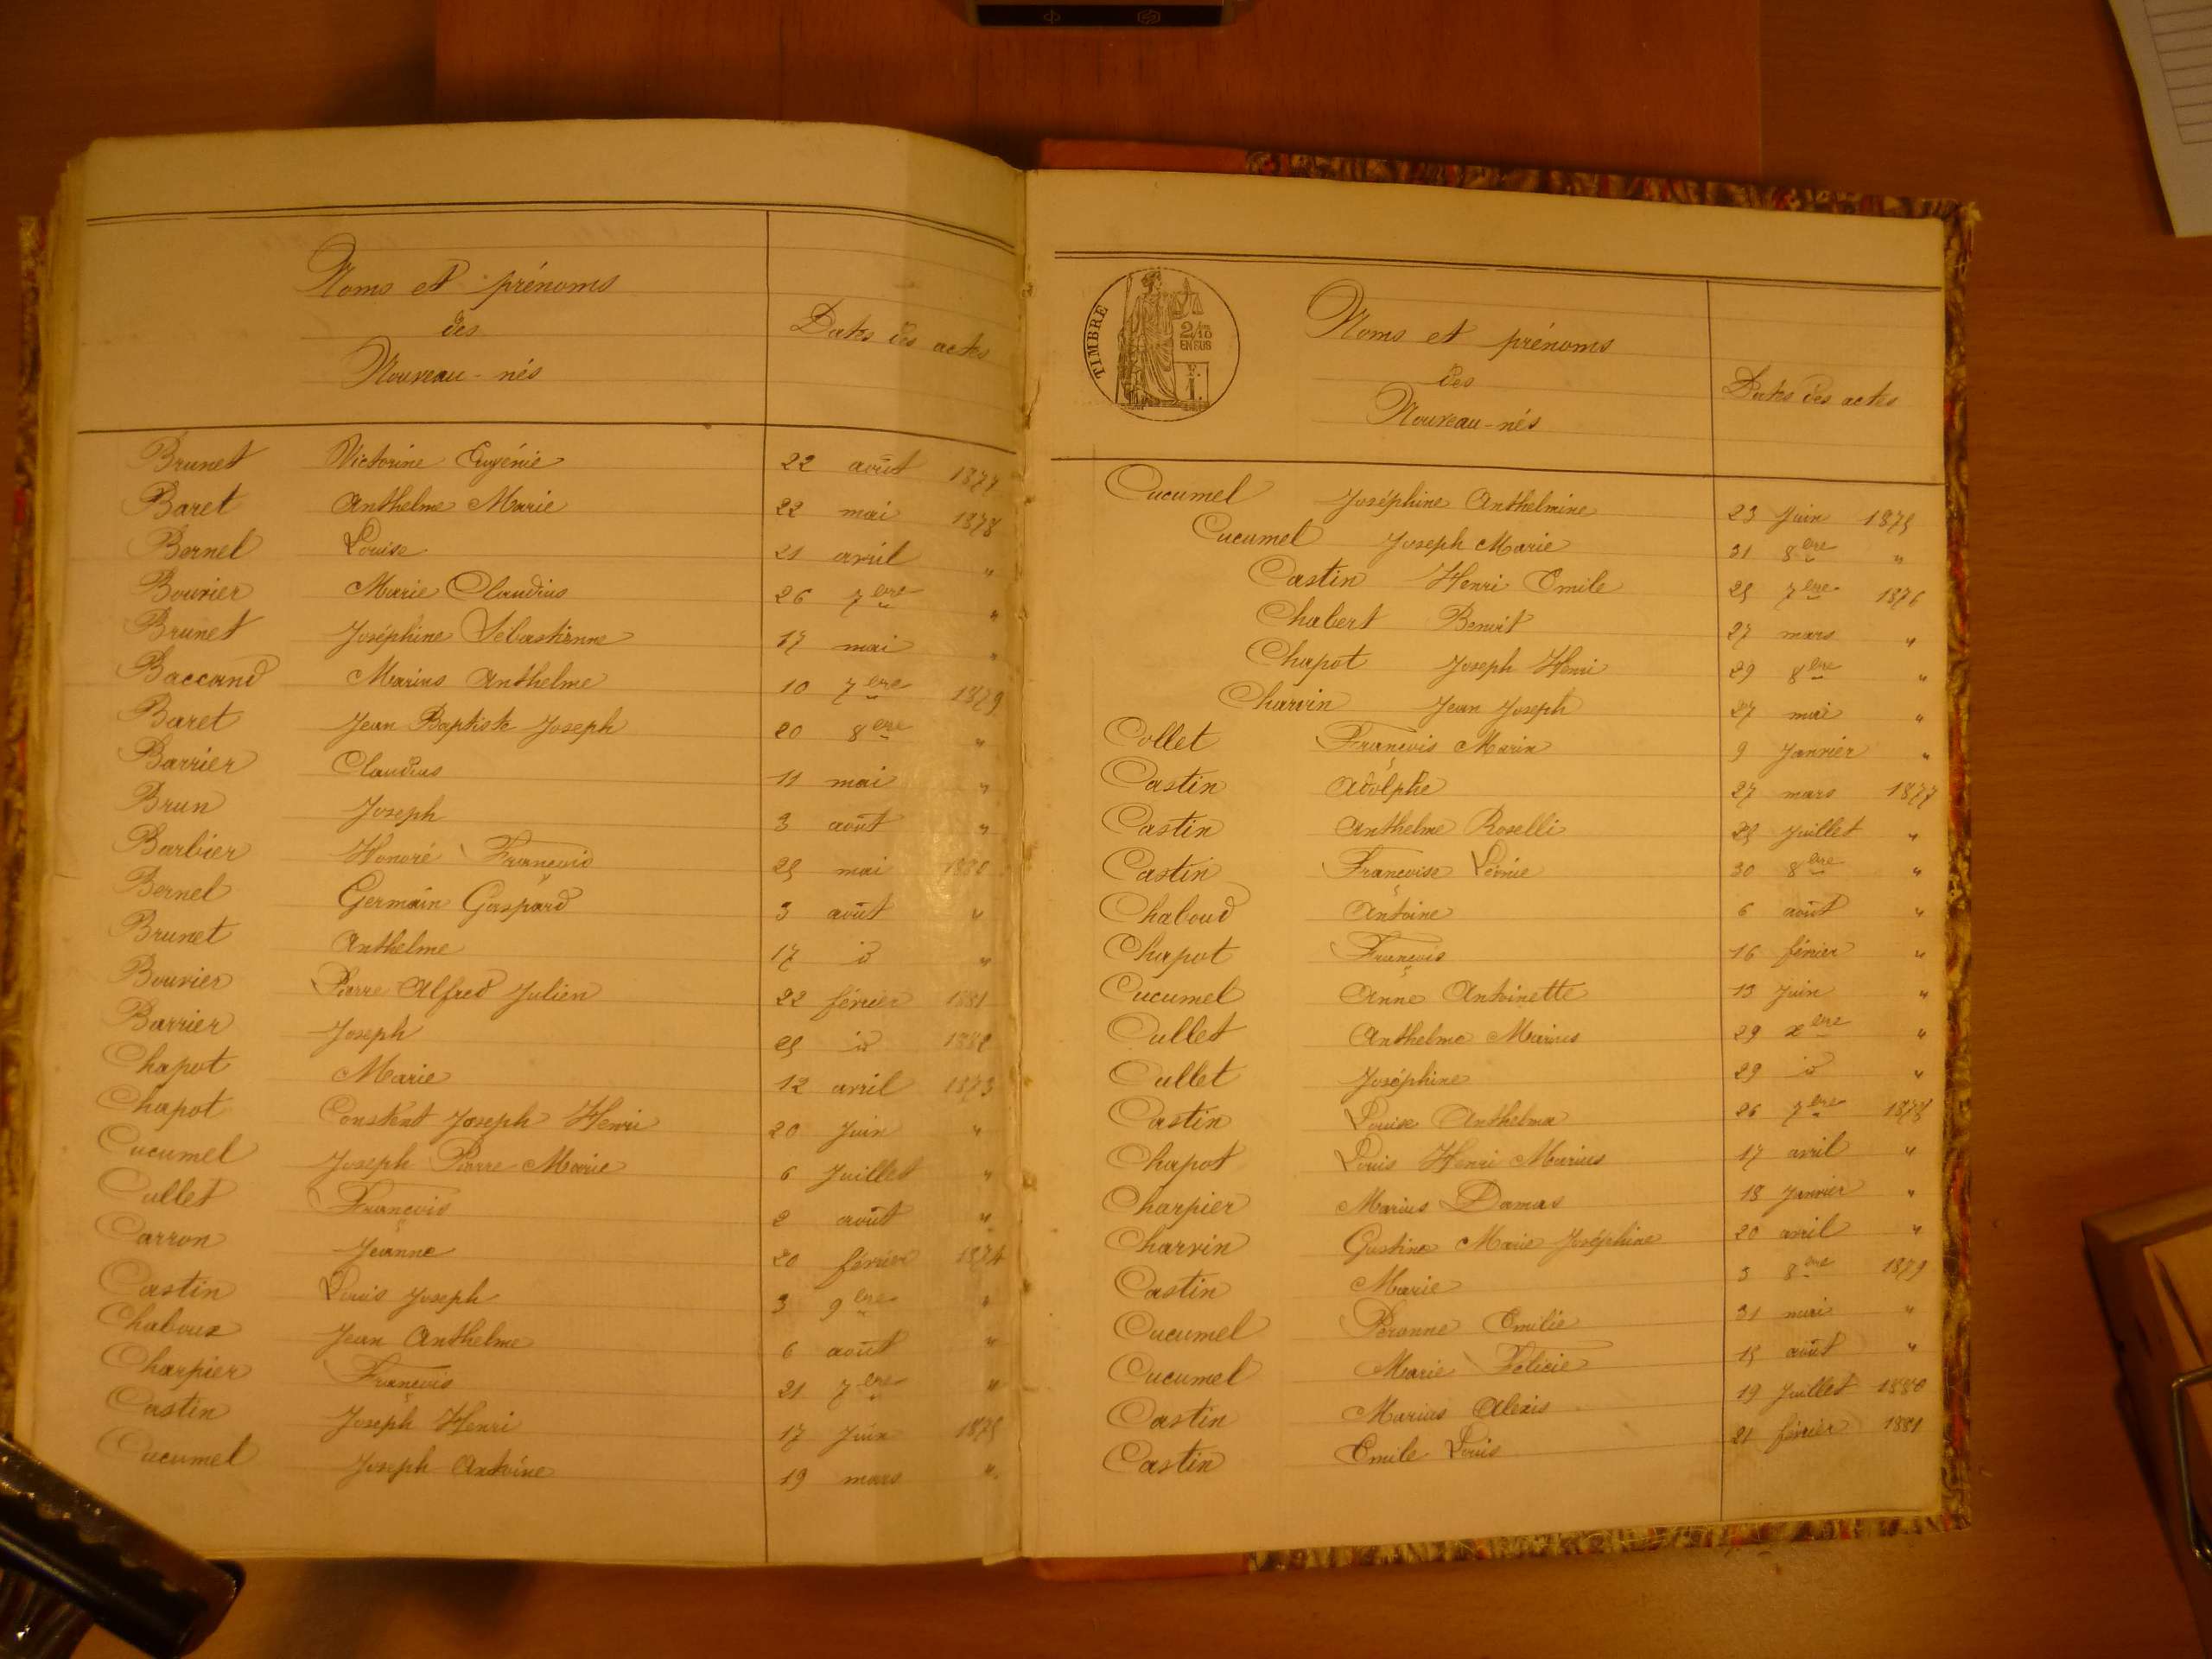 Noms et prénoms
des
Nouveau-nés
Dates des actes
Brunet Victorine Eugénie 22 août 1877
Baret Anthelme Marie 22 mai 1878
Bernel Louise 21 avril "
Bouvier Marie Claudius 26 7bre "
Brunet Joséphine Sébastienne 17 mai "
Baccand Marius Anthelme 10 7bre 1879
Baret Jean Baptiste Joseph 20 8bre "
Barrier Claudius 11 mai "
Brun Joseph 3 août "
Barbier Honoré François 25 mai 1880
Bernel Germain Gaspard 3 août "
Brunet Anthelme 17 d "
Bouvier Pierre Alfred Julien 22 février 1881
Barrier Joseph 25 d 1882
Chapot Marie 12 avril 1873
Chapot Constant Joseph Henri 20 Juin "
Cucumel Joseph Pierre Marie 6 Juillet "
Cullet François 2 août "
Carron Jeanne 20 février 1874
Castin Louis Joseph 3 9bre "
Chaboux Jean Anthelme 6 août "
Charpier François 21 7bre "
Castin Joseph Henri 17 Juin 1875
Cucumel Joseph Antoine 19 mars "
TIMBRE
2/10
EN SUS
F.
1.
Noms et prénoms
des
Nouveau-nés
Dates des actes
Cucumel Joséphine Anthelmine 23 Juin 1875
Cucumel Joseph Marie 31 8bre "
Castin Henri Emile 25 7bre 1876
Chabert Benoit 27 mars "
Chapot Joseph Henri 29 8bre "
Charvin Jean Joseph 27 mai "
Collet François Marin 9 Janvier "
Castin Adolphe 27 mars 1877
Castin Anthelme Roselli 25 Juillet "
Castin Françoise Léonie 30 8bre "
Chaboud Antoine 6 août "
Chapot François 16 février "
Cucumel Anne Antoinette 13 Juin "
Cullet Anthelme Marius 29 xbre "
Cullet Joséphine 29 d "
Castin Louise Anthelma 26 7bre 1878
Chapot Louis Henri Marius 17 avril "
Charpier Marius Damas 18 Janvier "
Charvin Gustine Marie Joséphine 20 avril "
Castin Marie 3 8bre 1879
Cucumel Péranne Emilie 31 mai "
Cucumel Marie Félicie 15 août "
Castin Marius Alexis 19 Juillet 1880
Castin Emile Louis 21 février 1881